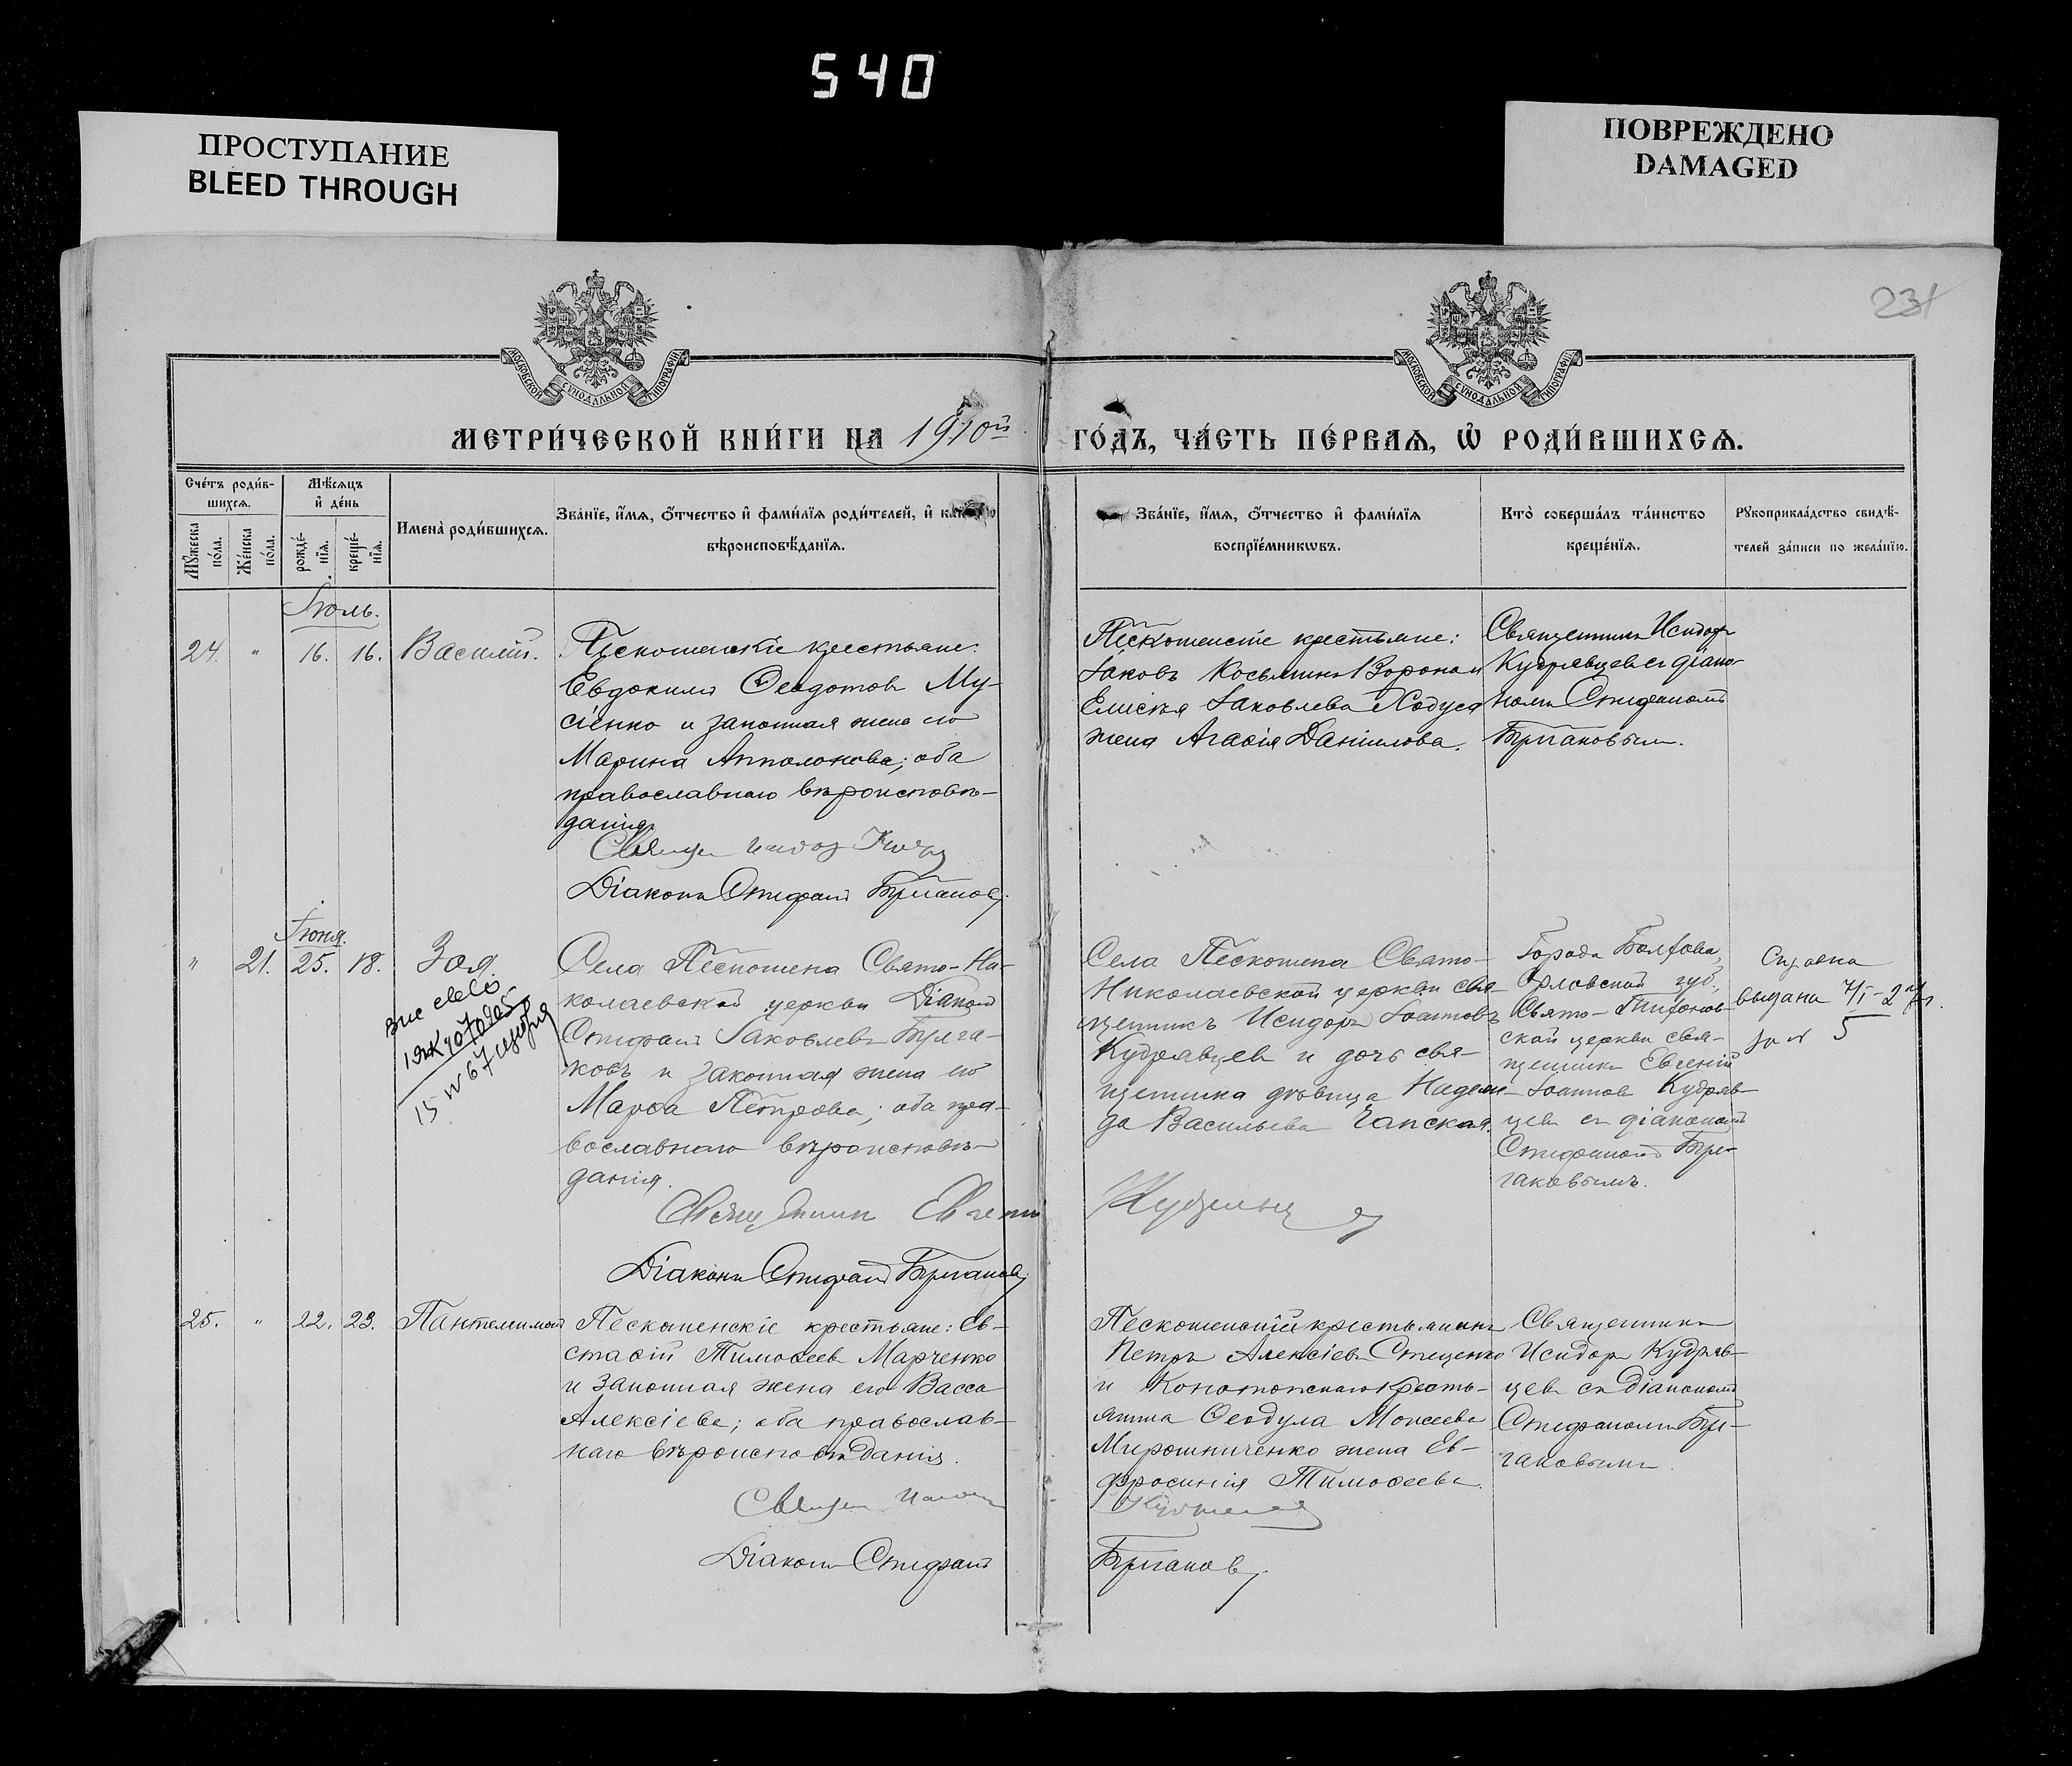 540
ПРОСТУПАНИЕ
BLEED THROUGH
ПОВРЕЖДЕНО
DAMAGED
231
МОСКОВСКОЙ СУНОДАЛЬНОЙ ТИПОГРАФІИ
МОСКОВСКОЙ СУНОДАЛЬНОЙ ТИПОГРАФІИ
МЕТРИ́ЧЕСКОЙ КНИ́ГИ НА 1910й
ГО́ДЪ, ЧА́СТЬ ПЕ́РВАѦ, Ѡ҆ РОДИ́ВШИХСѦ.
Сче́тъ роди́в-
шихсѧ.
Мѹжеска по́ла.
Же́нска по́ла.
Мѣ́сѧцъ
и҆ де́нь
рожде́-
нїѧ.
креще́-
нїѧ.
Имена̀ роди́вшихсѧ.
Зва́нїе, и҆́мѧ, ѻ҆́тчество и҆ фами́лїѧ роди́телей, и҆
вѣроисповѣ́данїѧ.
Зва́нїе, и҆́мѧ, ѻ҆́тчество и҆ фами́лїѧ
воспрїе́мникѡвъ.
Кто̀ соверша́лъ та́инство
креще́нїѧ.
Рѹкоприкла́дство свидѣ́-
телей за́писи по жела́нїю.
Іюль.
24. " 16. 16. Василій.
Пескошенскіе крестьяне:
Евдокимъ Ѳеодотовъ Му-
сіенко и законная жена его
Марина Апполонова; оба
православнаго вѣроисповѣ-
данія.
Діаконъ Стефанъ Булгаковъ
Пескошенскіе крестьяне:
Іаковъ Косьминъ Воронай
Іаковлева
жена Агаѳія Даніилова.
Священникъ Исидоръ
Кудрявцевъ съ діако-
номъ Стефаномъ
Булгаковымъ.
Іюня.
" 21. 25. 18. Зоя.
Села Пескошена Свято-Ни-
колаевской церкви Діаконъ
Стефанъ Іаковлевъ Булга-
ковъ и законная жена его
Марѳа Петрова; оба пра-
вославнаго вѣроисповѣ-
данія.
Священникъ Евгеній Кудрявцевъ
Діаконъ Стефанъ Булгаковъ
Села Пескошена Свято-
Николаевской церкви свя-
щенникъ Исидоръ Іоанновъ
Кудрявцевъ и дочь свя-
щенника дѣвица Надеж-
да Васильева Гапская.
Города Болхова,
Орловской губ.,
Свято-
ской церкви свя-
щенникъ Евгеній
Іоанновъ Кудряв-
цевъ съ діакономъ
Стефаномъ Бул-
гаковымъ.
Справка
выдана 7/I-27г.
за № 5
25. " 22. 23. Пантелимонъ
Пескошенскіе крестьяне: Ев-
стаѳій Тимоѳеевъ Марченко
и законная жена его Васса
Алексіева; оба православ-
наго вѣроисповѣданія.
Діаконъ Стефанъ Булгаковъ
Пескошенскій крестьянинъ
Петръ Алексіевъ Стеценко
и Конотопскаго кресть-
янина Ѳеодула Моисеева
Мирошниченко жена Ев-
фросинія Тимоѳеева.
Священникъ
Исидоръ Кудряв-
цевъ съ Діакономъ
Стефаномъ Бул-
гаковымъ.